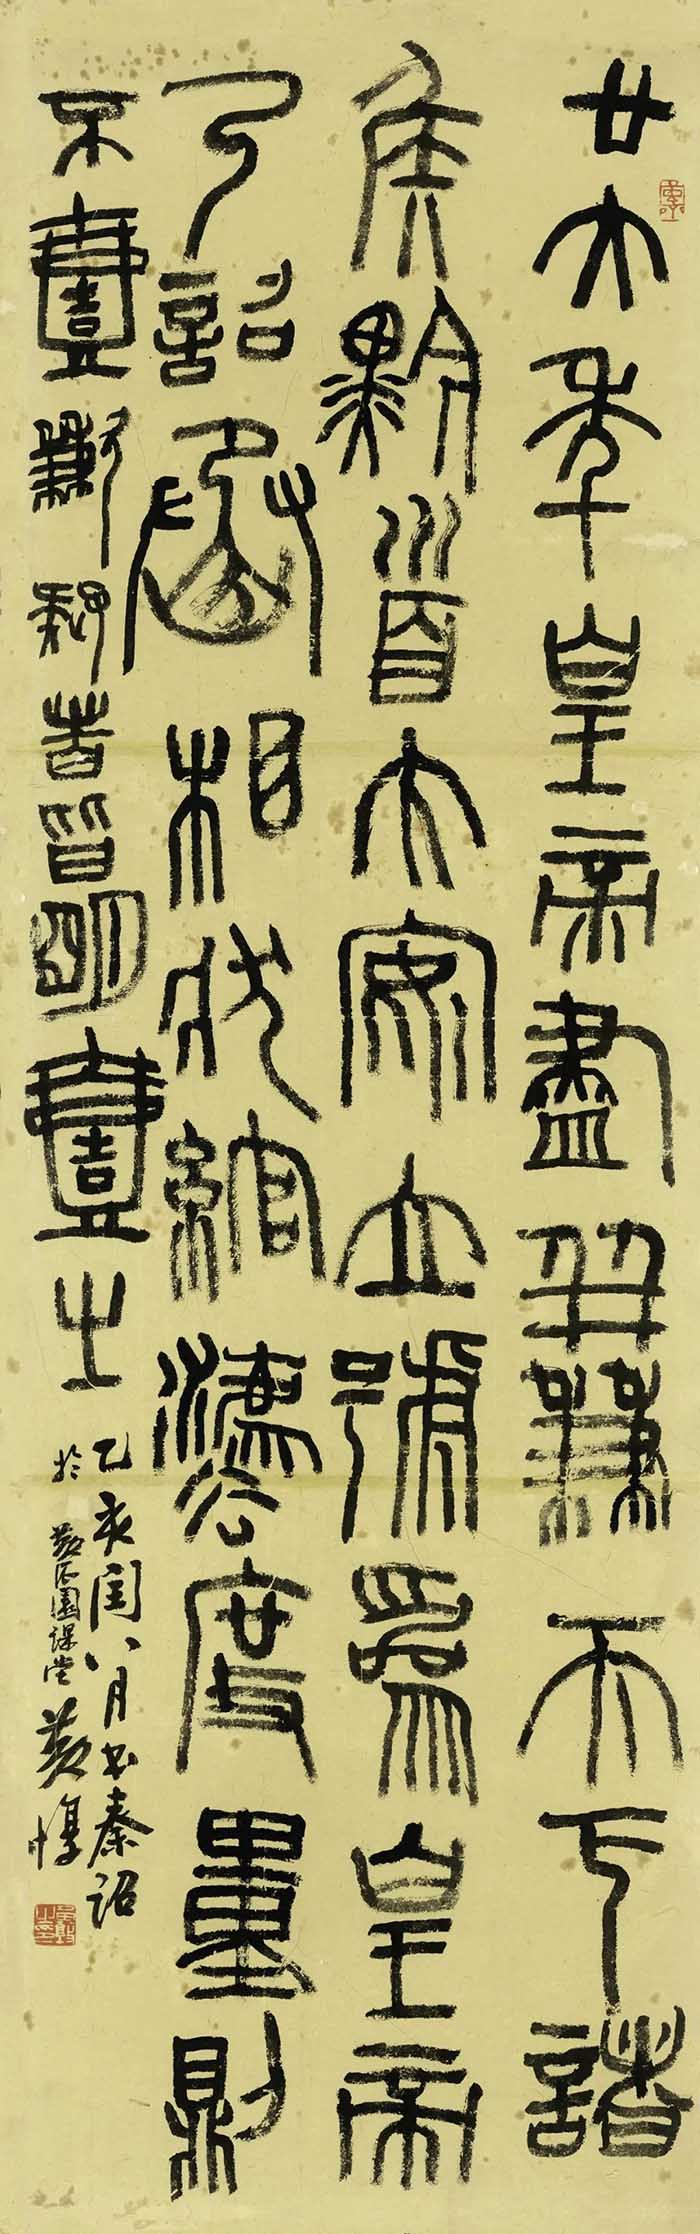 廿六年皇帝盡并兼天下諸
侯黔首大安立號為皇帝
乃詔丞相狀綰灋度量則
不壹歉疑者皆明壹之
乙亥閏八月書秦詔
於園課堂黃惇